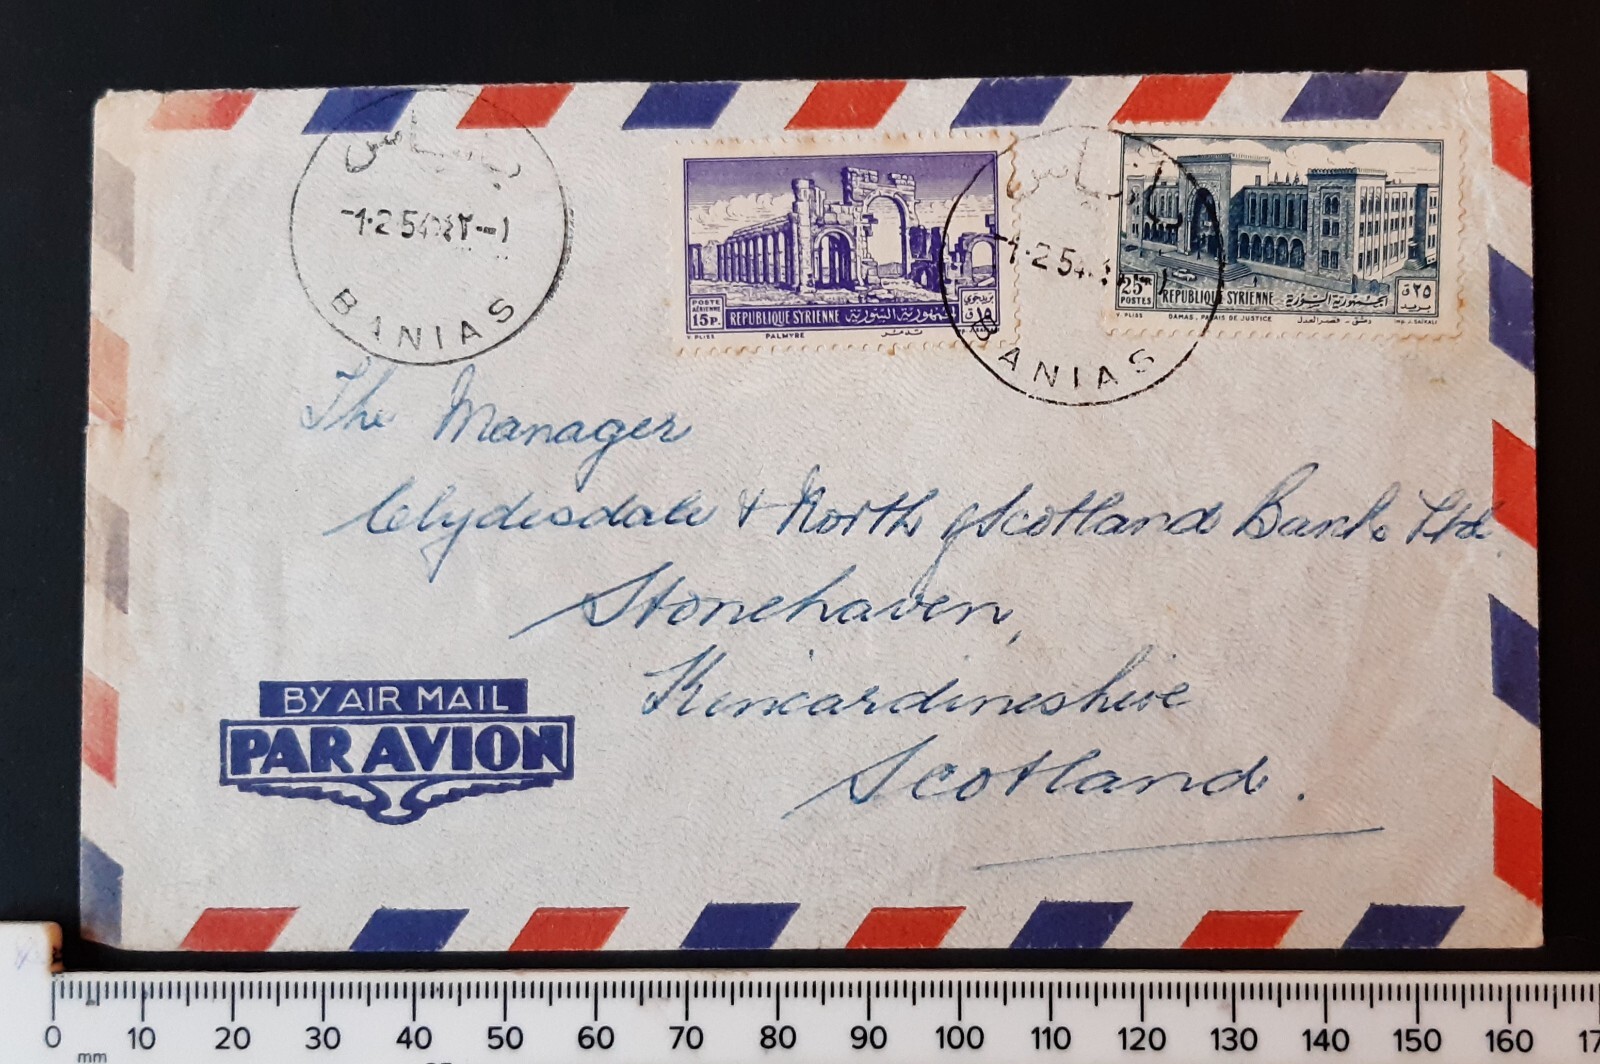 بانياس
-1.2.54
BANIAS
POSTE AÉRIENNE
15 P.
REPUBLIQUE SYRIENNE الجمهورية السورية
بريد جوي
ق ١٥
V. PLISS PALMYRE تدمر
بانياس
-1.2.54
BANIAS
25 P.
POSTES
REPUBLIQUE SYRIENNE الجمهورية السورية
ق ٢٥
بريد
V. PLISS DAMAS. PALAIS DE JUSTICE دمشق - قصر العدل IMP. J. SAIKALI
The Manager
Clydesdale & North of Scotland Bank Ltd.
Stonehaven,
Kincardineshire
Scotland.
BY AIR MAIL
PAR AVION
0 10 20 30 40 50 60 70 80 90 100 110 120 130 140 150 160 17
mm